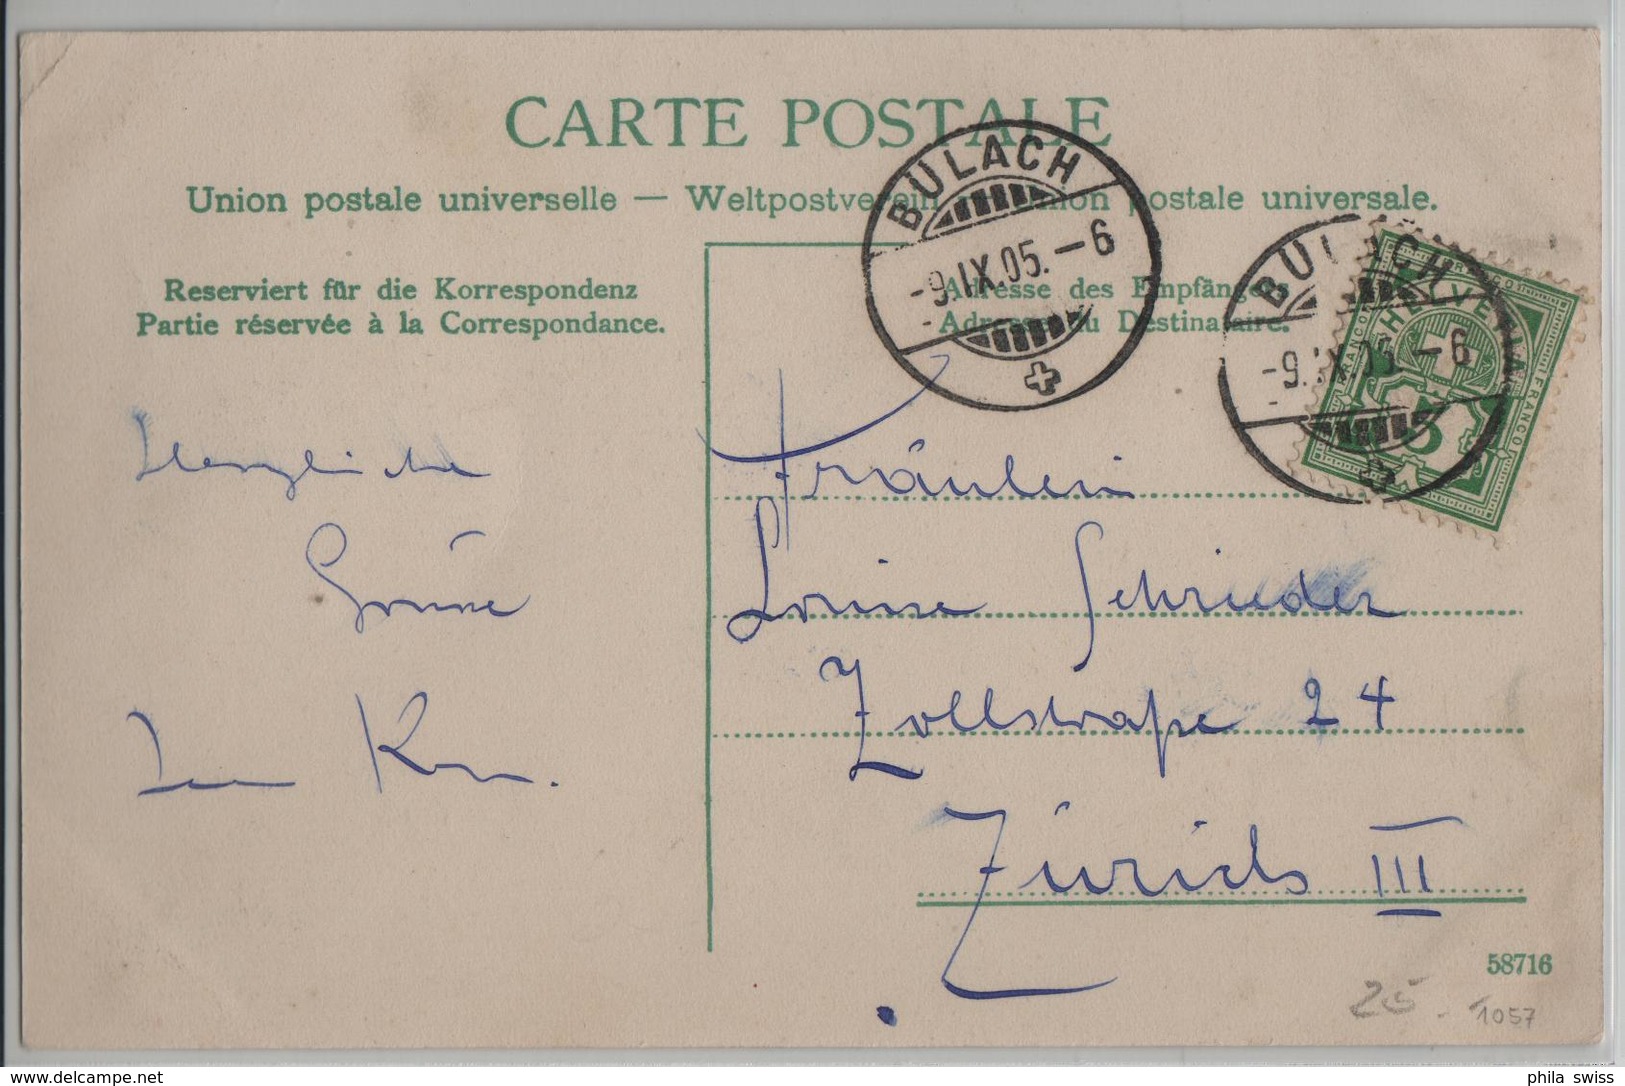 CARTE POSTALE
Union postale universelle — Weltpostverein — Union postale universale.
Reserviert für die Korrespondenz
Partie réservée à la Correspondance.
Adresse des Empfängers
Adresse du Destinataire.
BÜLACH
-9.IX.05.-6
BÜLACH
-9.IX.05.-6
HELVETIA
FRANCO
FRANCO
5
Herzliche
Grüsse
Fräulein
Louise Schrieder
Zollstraße 24
Zürich III
58716
25.-
1057
delcampe.net
phila_swiss